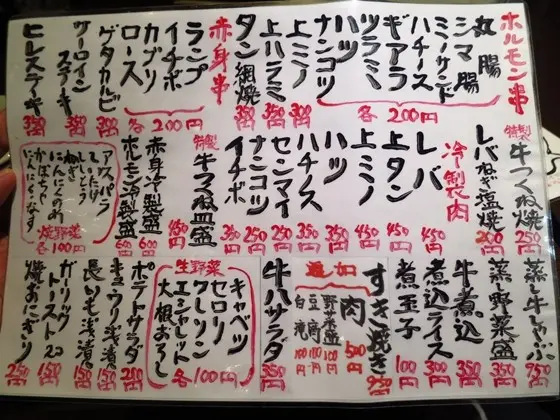 ホルモン串
丸腸
シマ腸
ミノサンド
ハチノス
ギアラ
ツラミ
ハツ
ナンコツ
各200円
上ミノ 350円
上ハラミ 350円
タン網焼 350円
赤身串
ランプ
イチボ
カブリ
ロース
各200円
ゲタカルビ 300円
サーロインステーキ 350円
ヒレステーキ 350円
特製牛つくね焼 250円
レバねぎ塩焼 200円
冷製肉
レバ 450円
上タン 450円
上ミノ 450円
ハツ 350円
ハチノス 350円
センマイ 250円
ナンコツ 250円
イチボ 350円
特製牛つくね皿盛 450円
赤身冷製盛 600円
ホルモン冷製盛 600円
アスパラ
しいたけ
ししとう
ねぎ
にんにくのめ
かぼちゃ
にんにく
なす
焼野菜
各100円
950円
蒸し野菜盛 350円
牛煮込 350円
煮込ライス 300円
煮玉子 100円
すき焼き 950円
追加
肉 500円
野菜盛 100円
豆腐 100円
白滝 100円
牛ハサラダ 350円
生野菜
キャベツ
セロリ
クレソン
エシャレット
大根おろし
各100円
ポテトサラダ 250円
キュウリ浅漬 150円
長いも浅漬 150円
ガーリックトースト2コ 150円
焼おにぎり 250円